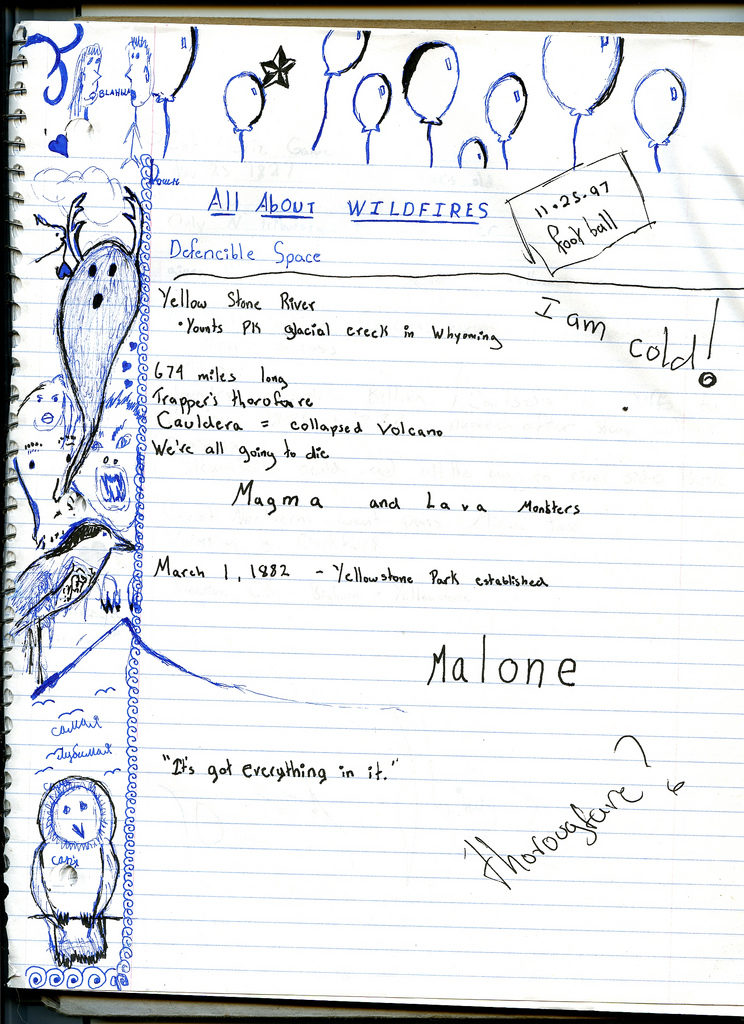 BLAHHH
All About WILDFIRES
11.25.97
football
Defencible Space
Yellow Stone River
•Younts PK glacial creek in Whyoming
I am cold!
674 miles long
Trapper's thorofare
Cauldera = collapsed volcano
We're all going to die
Magma and Lava Monsters
March 1, 1882 - Yellowstone Park established
Malone
самая
Любимая
"It's got everything in it."
thoroughfare?